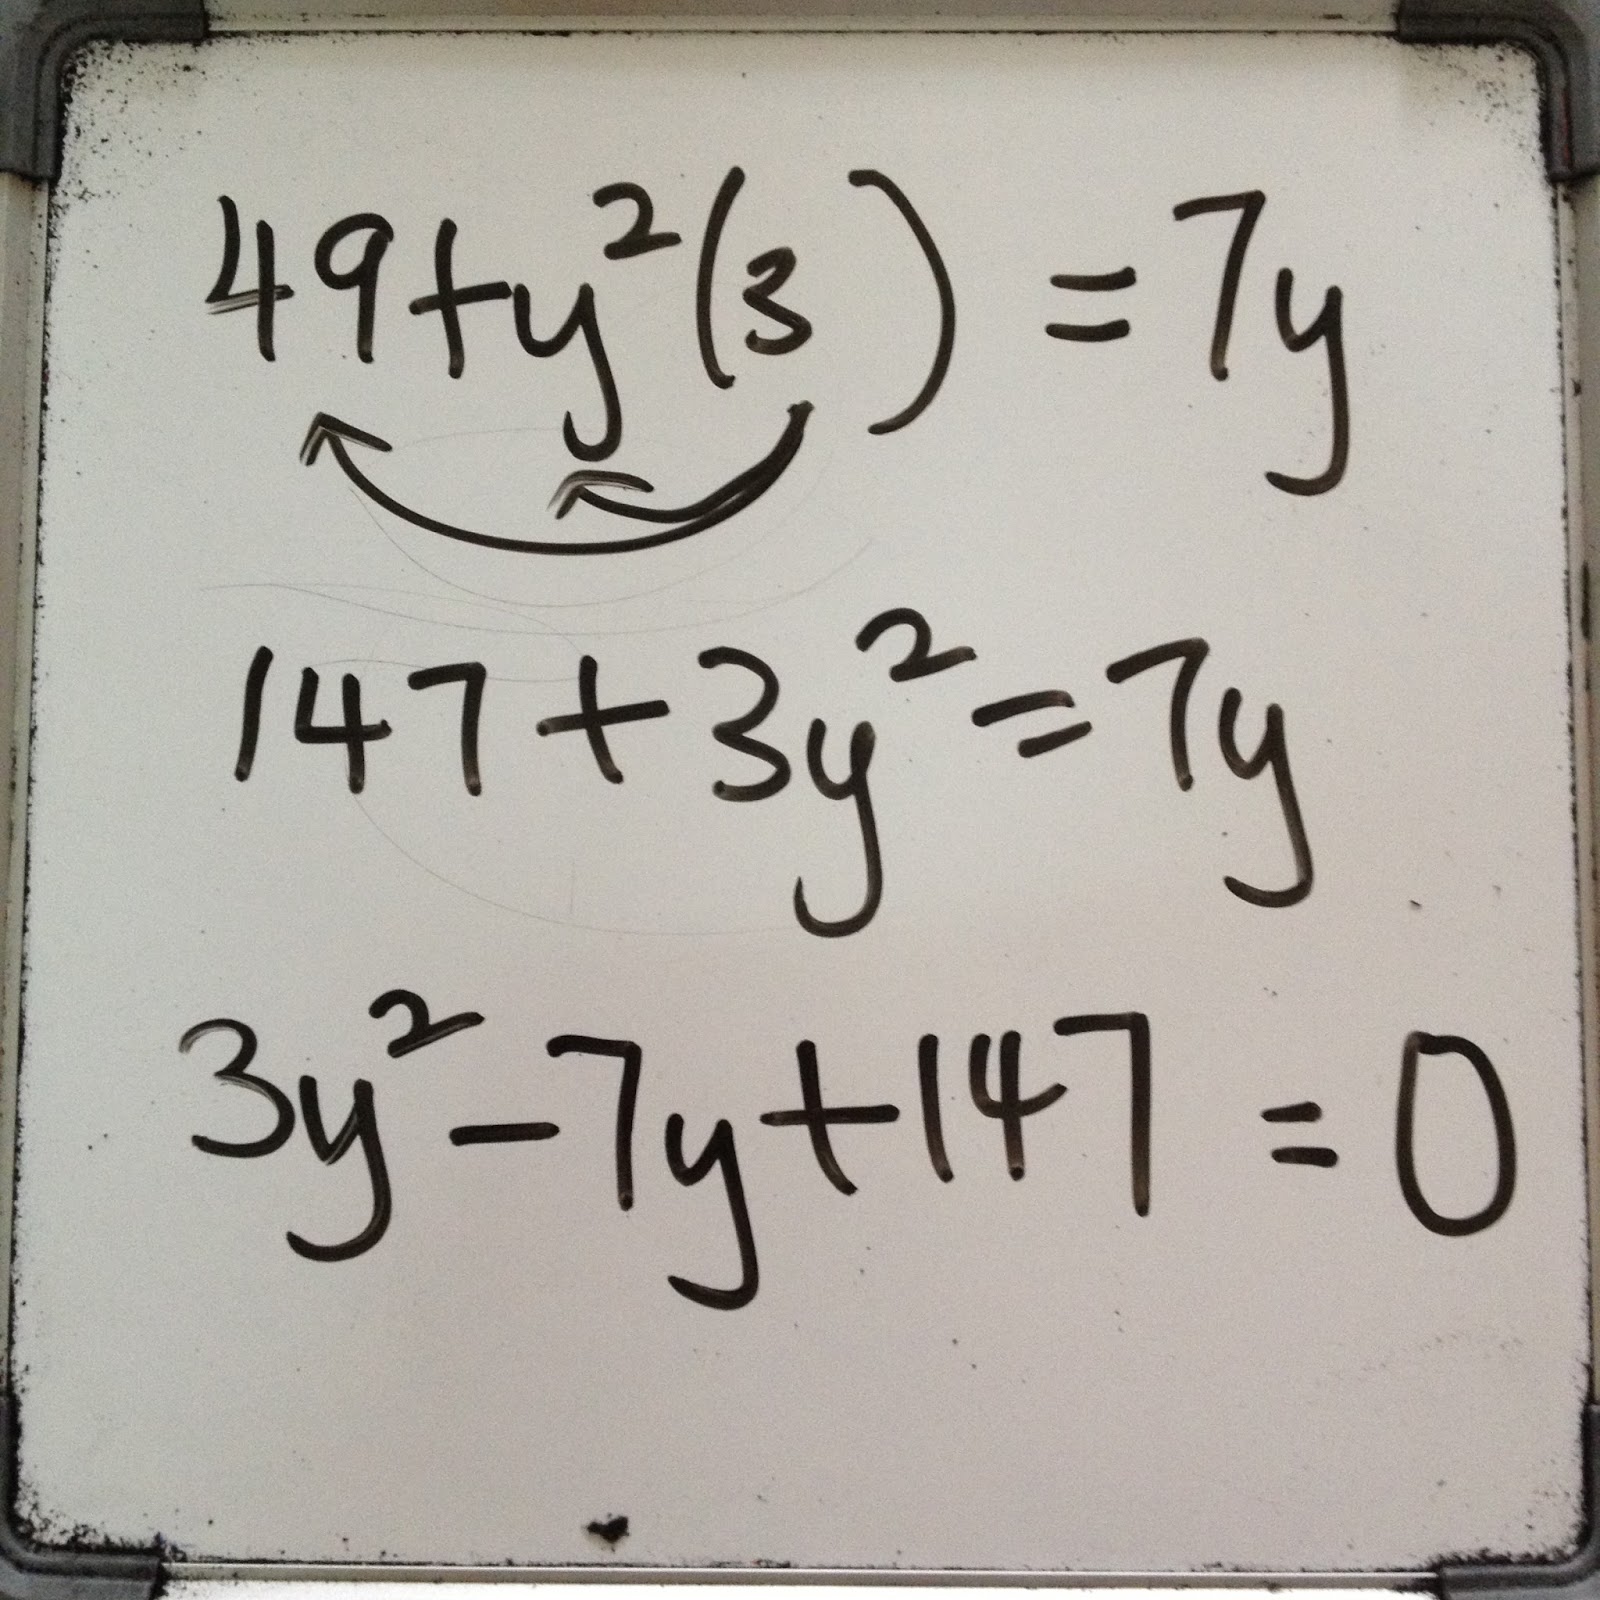 49+y²(3 ) = 7y
147+3y²=7y
3y²-7y+147 = 0